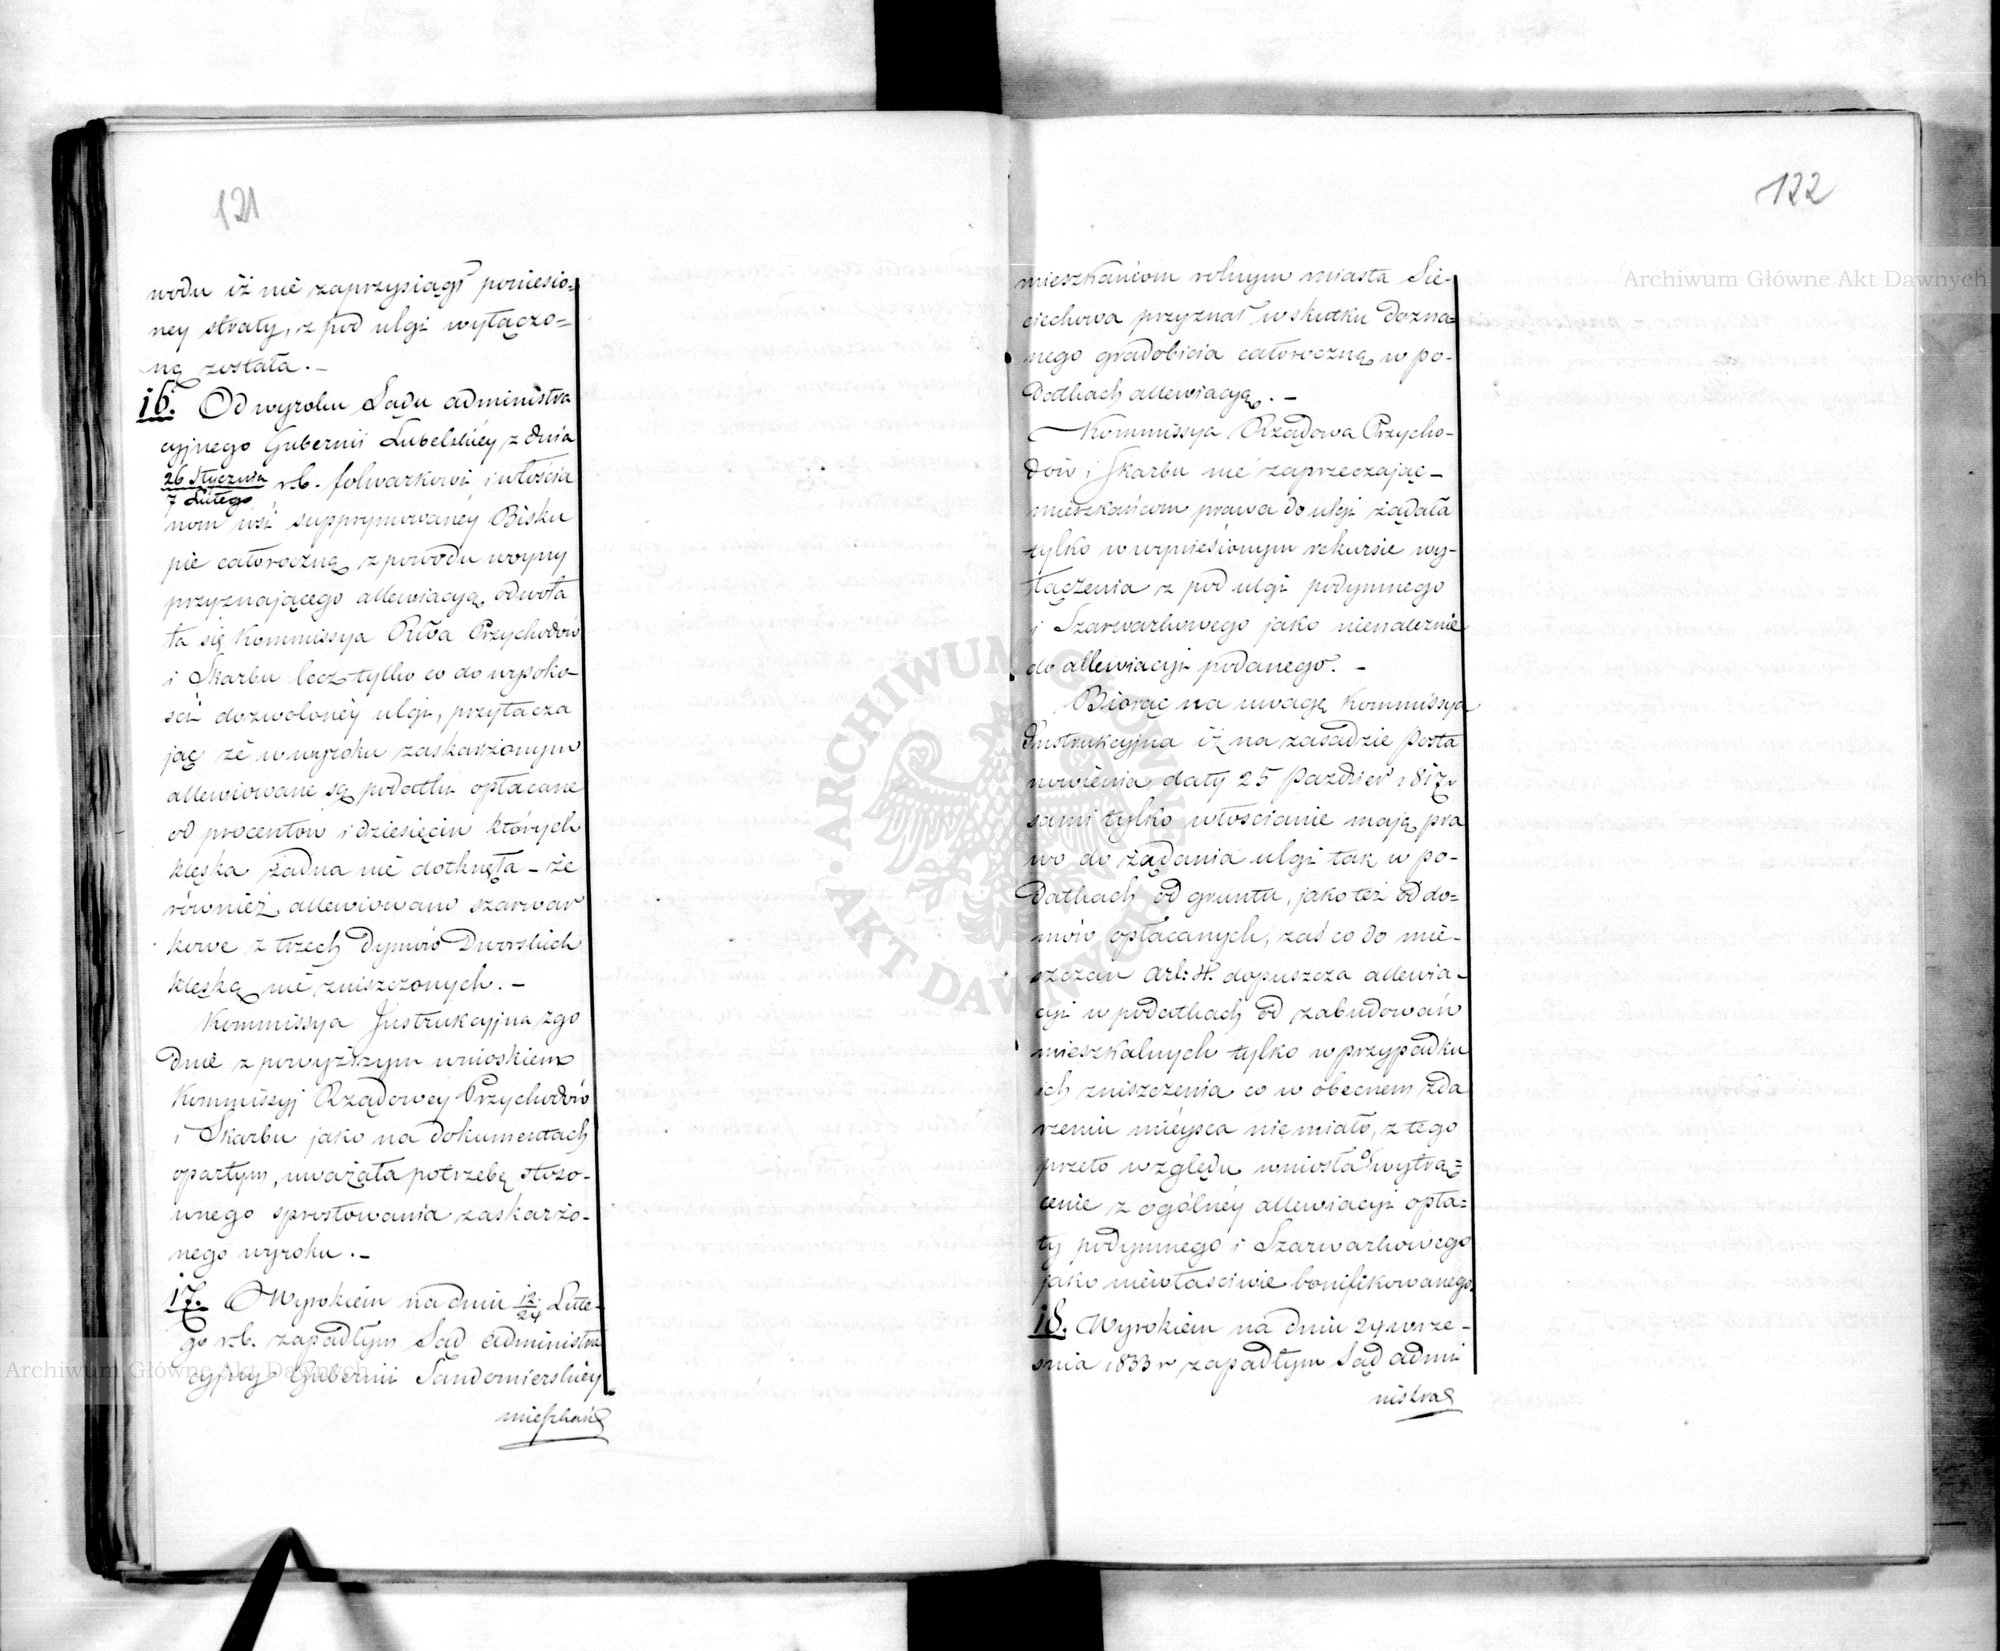 121
wodu iż nie zaprzysiągł poniesio-
ney straty, z pod ulgi wyłączo-
ną została. -
16. Od wyroku Sądu administra
cyjnego Gubernii Lubelskiéy z dnia
26 Stycznia r.b. folwarkowi i włościa
7 Lutego
nom wsi supprymowanéy Bisku
pie całoroczną z powodu woyny
przyznającego allewiacyą odwoła
ła się Kommissya Rłba Przychodów
i Skarbu lecz tylko co do wysoko-
ści dozwolonéy ulgi, przytacza
jąc że w wyroku zaskarżonym
allewiowane są podatki opłacane
od procentów i dziesięcin których
klęska żadna nie dotknęła - że
również allewiowano szarwar
kowe z trzech dymów Dworskich
klęską nie zniszczonych. -
Kommissya Instrukcyjna zgo
dnie z powyższym wnioskiem
Kommissyi Rządowéy Przychodów
i Skarbu jako na dokumentach
opartym, uważała potrzebę stoso-
wnego sprostowania zaskarżo-
nego wyroku. -
17. Wyrokiem na dniu 12/24 Lute-
go r.b. zapadłym Sąd administra
cyjny Gubernii Sandomierskiéy
mieszkań
122
mieszkańcom rolnym miasta Sie-
ciechowa przyznał w skutku dozna=
nego gradobicia całoroczną w po-
datkach allewiacyą. -
Kommissya Rządowa Przycho-
dów i Skarbu nie zaprzeczając -
mieszkańcom prawa do ulgi żądała
tylko w wyniesionym rekursie wy-
łączenia z pod ulgi podymnego
i Szarwarkowego jako nienależnie
do allewiacyi podanego. -
Biorąc na uwagę Kommissya
Instrukcyjna iż na zasadzie Posta
nowienia daty 25 Paździer 1817 r
sami tylko włościanie mają pra
wo do żądania ulgi tak w po-
datkach od gruntu, jako też od do=
mów opłacanych, zaś co do mie-
szczan Art: 4. dopuszcza allewia-
cyi w podatkach od zabudowań
mieszkalnych tylko w przypadku
ich zniszczenia co w obecnem zda
rzeniu mieysca nie miało, z tego
przeto względu wniosła o wytrą=
cenie z ogólnéy allewiacyi opła=
ty podymnego i Szarwarkowego
jako niewłaściwie bonifikowanego.
18. Wyrokiem na dniu 24 wrze-
śnia 1833 r zapadłym Sąd admi
nistra
Archiwum Główne Akt Dawnych
Archiwum Główne Akt Dawnych
ARCHIWUM GŁÓWNE AKT DAWNYCH